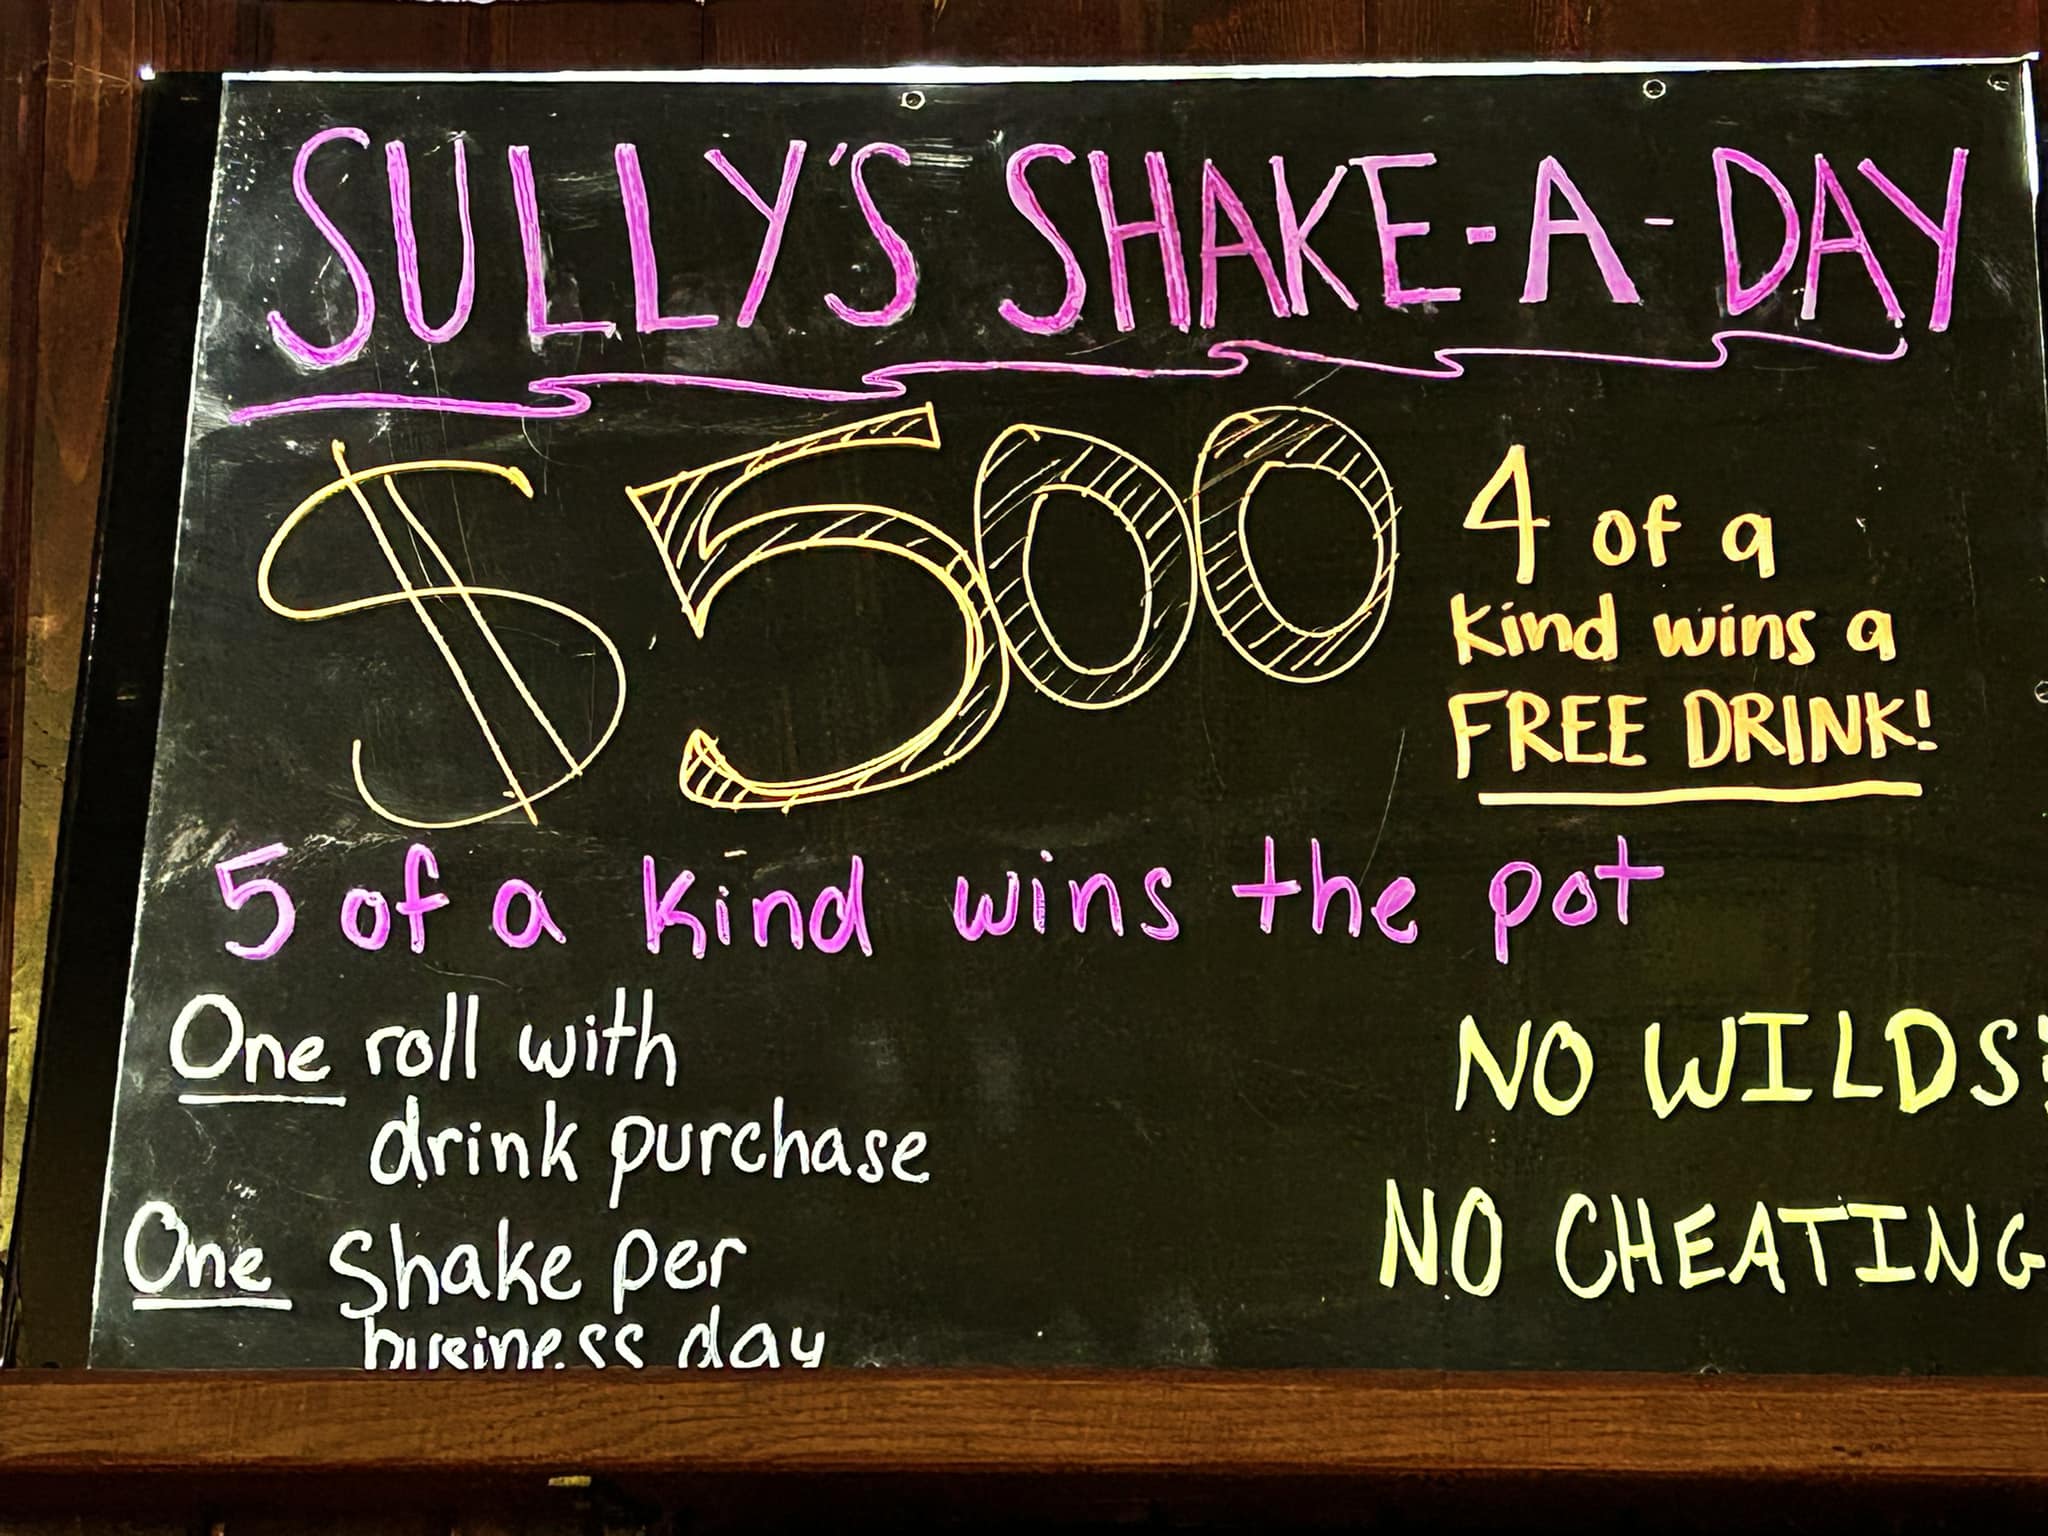 SULLY'S SHAKE-A-DAY
$500
4 of a
kind wins a
FREE DRINK!
5 of a kind wins the pot
One roll with
drink purchase
One shake per
business day
NO WILDS!
NO CHEATING